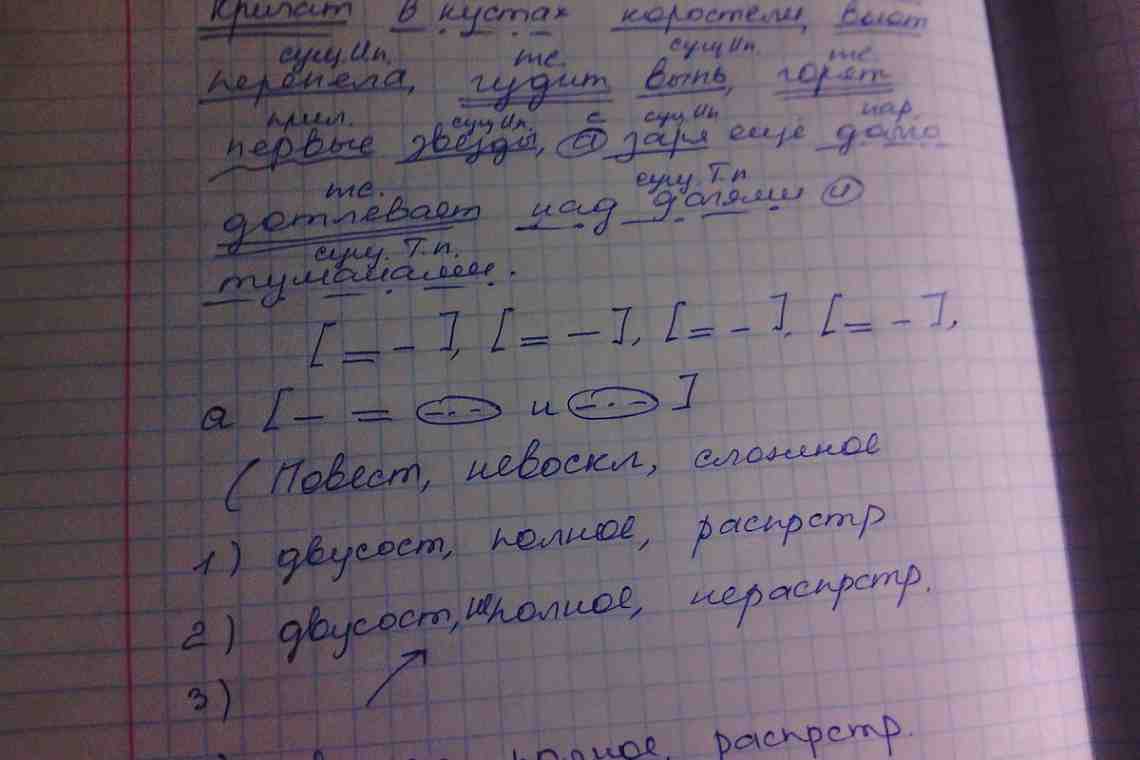 Кричат в кустах коростели, вьют
сущ Ип. гл. сущ Ип. гл.
перепела, гудит выпь, горят
прил. сущ Ип. с сущ Ип нар.
первые звёзды, а заря ещё долго
гл. сущ. Т.п
дотлевает над далями и
сущ. Т.п.
туманами.
[= -], [= -], [= -], [= -],
а [- = -.- и -.-]
(Повест, невоскл, сложное
1) двусост, полное, распрстр
2) двусост, неполное, нераспрстр.
3)
полное, распрстр.